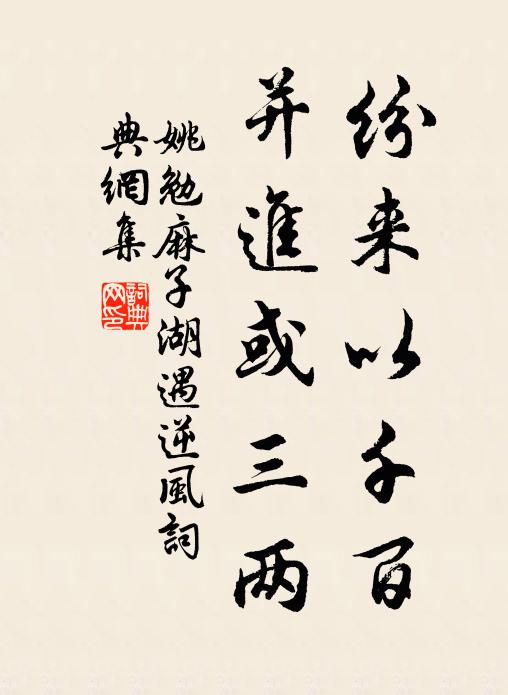 纷来以千百
并進或三两
姚勉麻子湖遇逆風詞
典網集
詞典
网印